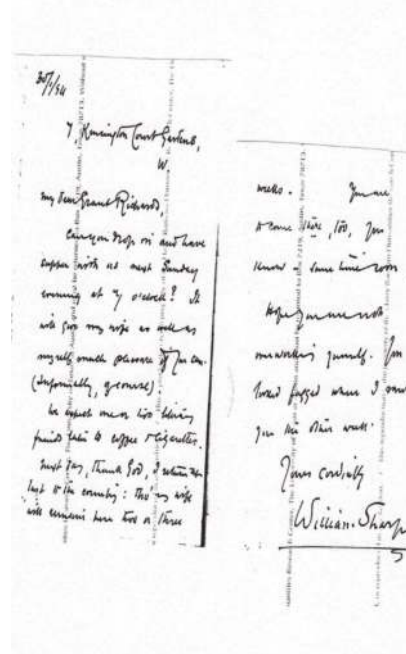 30/1/94
7, Kensington Court Gardens,
W.
My dear Grant Richards,
Can you drop in and have
supper with us next Sunday
evening at 7 o'clock? It
will give my wife as well as
myself much pleasure if you can.
(Informally, of course)
We expect one or two literary
friends later to coffee & cigarettes.
Next day, thank God, I return
to the country: tho' my wife
will remain here two or three
weeks. You are
to come there, too, you
know - some time soon
Hope you are not
overworking yourself. You
looked fagged when I saw
you the other week.
Yours cordially
William Sharp